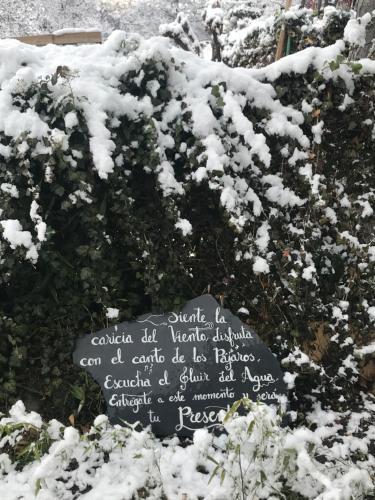 Siente la
caricia del Viento, disfruta
con el canto de los Pájaros,
Escucha el fluir del Agua
Entrégate a este momento y será
tu Presente